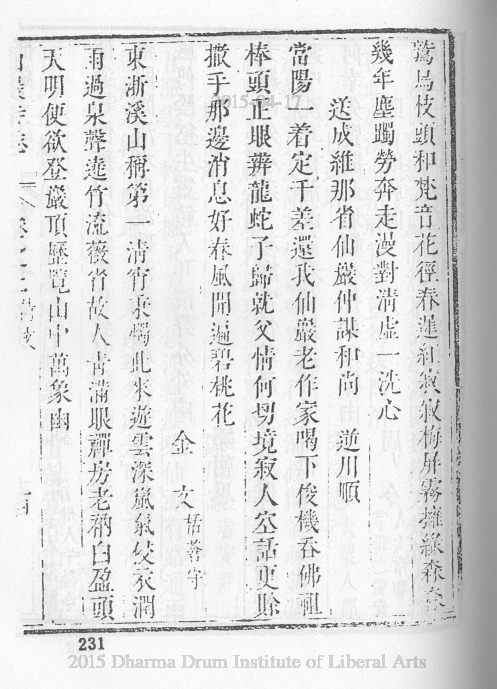 鷲鳥枝頭和梵音花徑春蓮紅寂寂梅屏霧擁綠森森
幾年塵躅勞奔走漫對清虛一洗心
送成維那省仙嚴仲謀和尚 逆川順
當陽一着定千差還我仙嚴老作家喝下俊機吞佛祖
棒頭正眼辨龍蛇子歸就父情何切境寂人空話更賒
撒手那邊消息好春風開遍碧桃花
金文
東浙溪山稱第一清宵秉燭此來遊雲深嵐氣侵衣潤
雨過泉聲遶竹流薇省故人青滿眼禪房老衲白盈頭
天明便欲登嚴頂歷覽山中萬象幽
2015-04-17
231
2015 Dharma Drum Institute of Liberal Arts